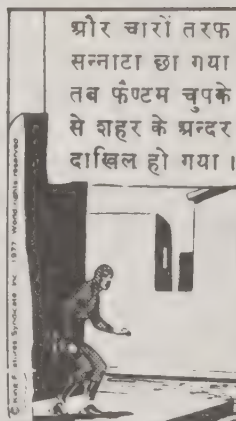 और चारों तरफ
सन्नाटा छा गया
तब फॅण्टम चुपके
से शहर के अन्दर
दाखिल हो गया।
© King Features Syndicate Inc 1977 World rights reserved